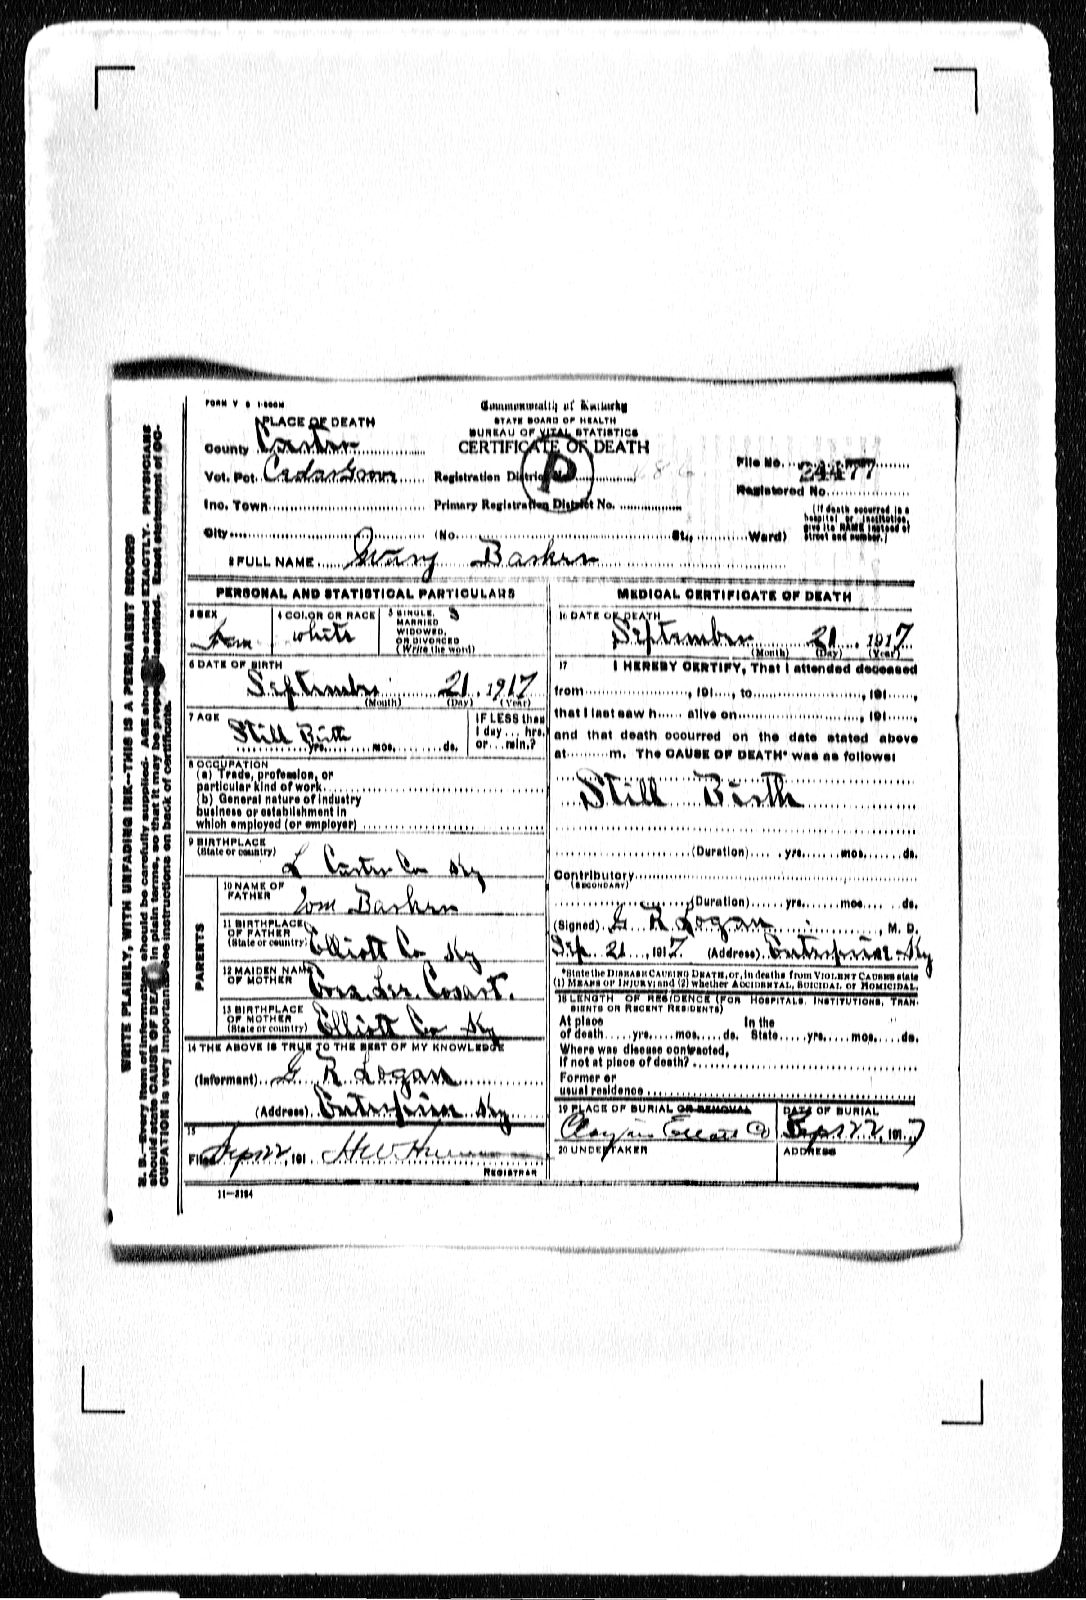 FORM V S 1-500M
Commonwealth of Kentucky
STATE BOARD OF HEALTH
BUREAU OF VITAL STATISTICS
CERTIFICATE OF DEATH
PLACE OF DEATH
County Carter
Vot. Pct.
Inc. Town
City (No. St., Ward)
Registration District No.
Primary Registration District No.
P
File No. 24477
Registered No.
(If death occurred in a hospital or institution, give its NAME instead of street and number.)
2 FULL NAME Barker
PERSONAL AND STATISTICAL PARTICULARS
3 SEX
Fem
4 COLOR OR RACE
white
5 SINGLE, MARRIED WIDOWED, OR DIVORCED (Write the word)
S
6 DATE OF BIRTH
September 21, 1917
(Month) (Day) (Year)
7 AGE
Still Birth
yrs. mos. ds.
IF LESS than 1 day... hrs. or... min.?
8 OCCUPATION
(a) Trade, profession, or
particular kind of work
(b) General nature of industry
business or establishment in
which employed (or employer)
9 BIRTHPLACE
(State or country)
Carter Co Ky
PARENTS
10 NAME OF FATHER
Barker
11 BIRTHPLACE OF FATHER
(State or country)
Elliott Co Ky
12 MAIDEN NAME OF MOTHER
13 BIRTHPLACE OF MOTHER
(State or country)
Elliott Co Ky
14 THE ABOVE IS TRUE TO THE BEST OF MY KNOWLEDGE
(Informant) G R Logan
(Address) Enterprise Ky
15
Filed Sept 22, 191
REGISTRAR
11-3184
MEDICAL CERTIFICATE OF DEATH
16 DATE OF DEATH
September 21, 1917
(Month) (Day) (Year)
17 I HEREBY CERTIFY, That I attended deceased
from , 191 , to , 191 ,
that I last saw h alive on , 191 ,
and that death occurred on the date stated above
at m. The CAUSE OF DEATH* was as follows:
Still Birth
(Duration) yrs. mos. ds.
Contributory
(SECONDARY)
(Duration) yrs. mos. ds.
(Signed) G R Logan, M. D.
Sep 21, 1917 (Address) Enterprise Ky
*State the DISEASE CAUSING DEATH, or, in deaths from VIOLENT CAUSES state
(1) MEANS OF INJURY; and (2) whether ACCIDENTAL, SUICIDAL or HOMICIDAL.
18 LENGTH OF RESIDENCE (FOR HOSPITALS, INSTITUTIONS, TRANSIENTS OR RECENT RESIDENTS)
At place of death yrs. mos. ds.
In the State yrs. mos. ds.
Where was disease contracted,
if not at place of death?
Former or
usual residence
19 PLACE OF BURIAL OR REMOVAL
DATE OF BURIAL
Sept 22, 1917
20 UNDERTAKER
ADDRESS
WRITE PLAINLY, WITH UNFADING INK—THIS IS A PERMANENT RECORD